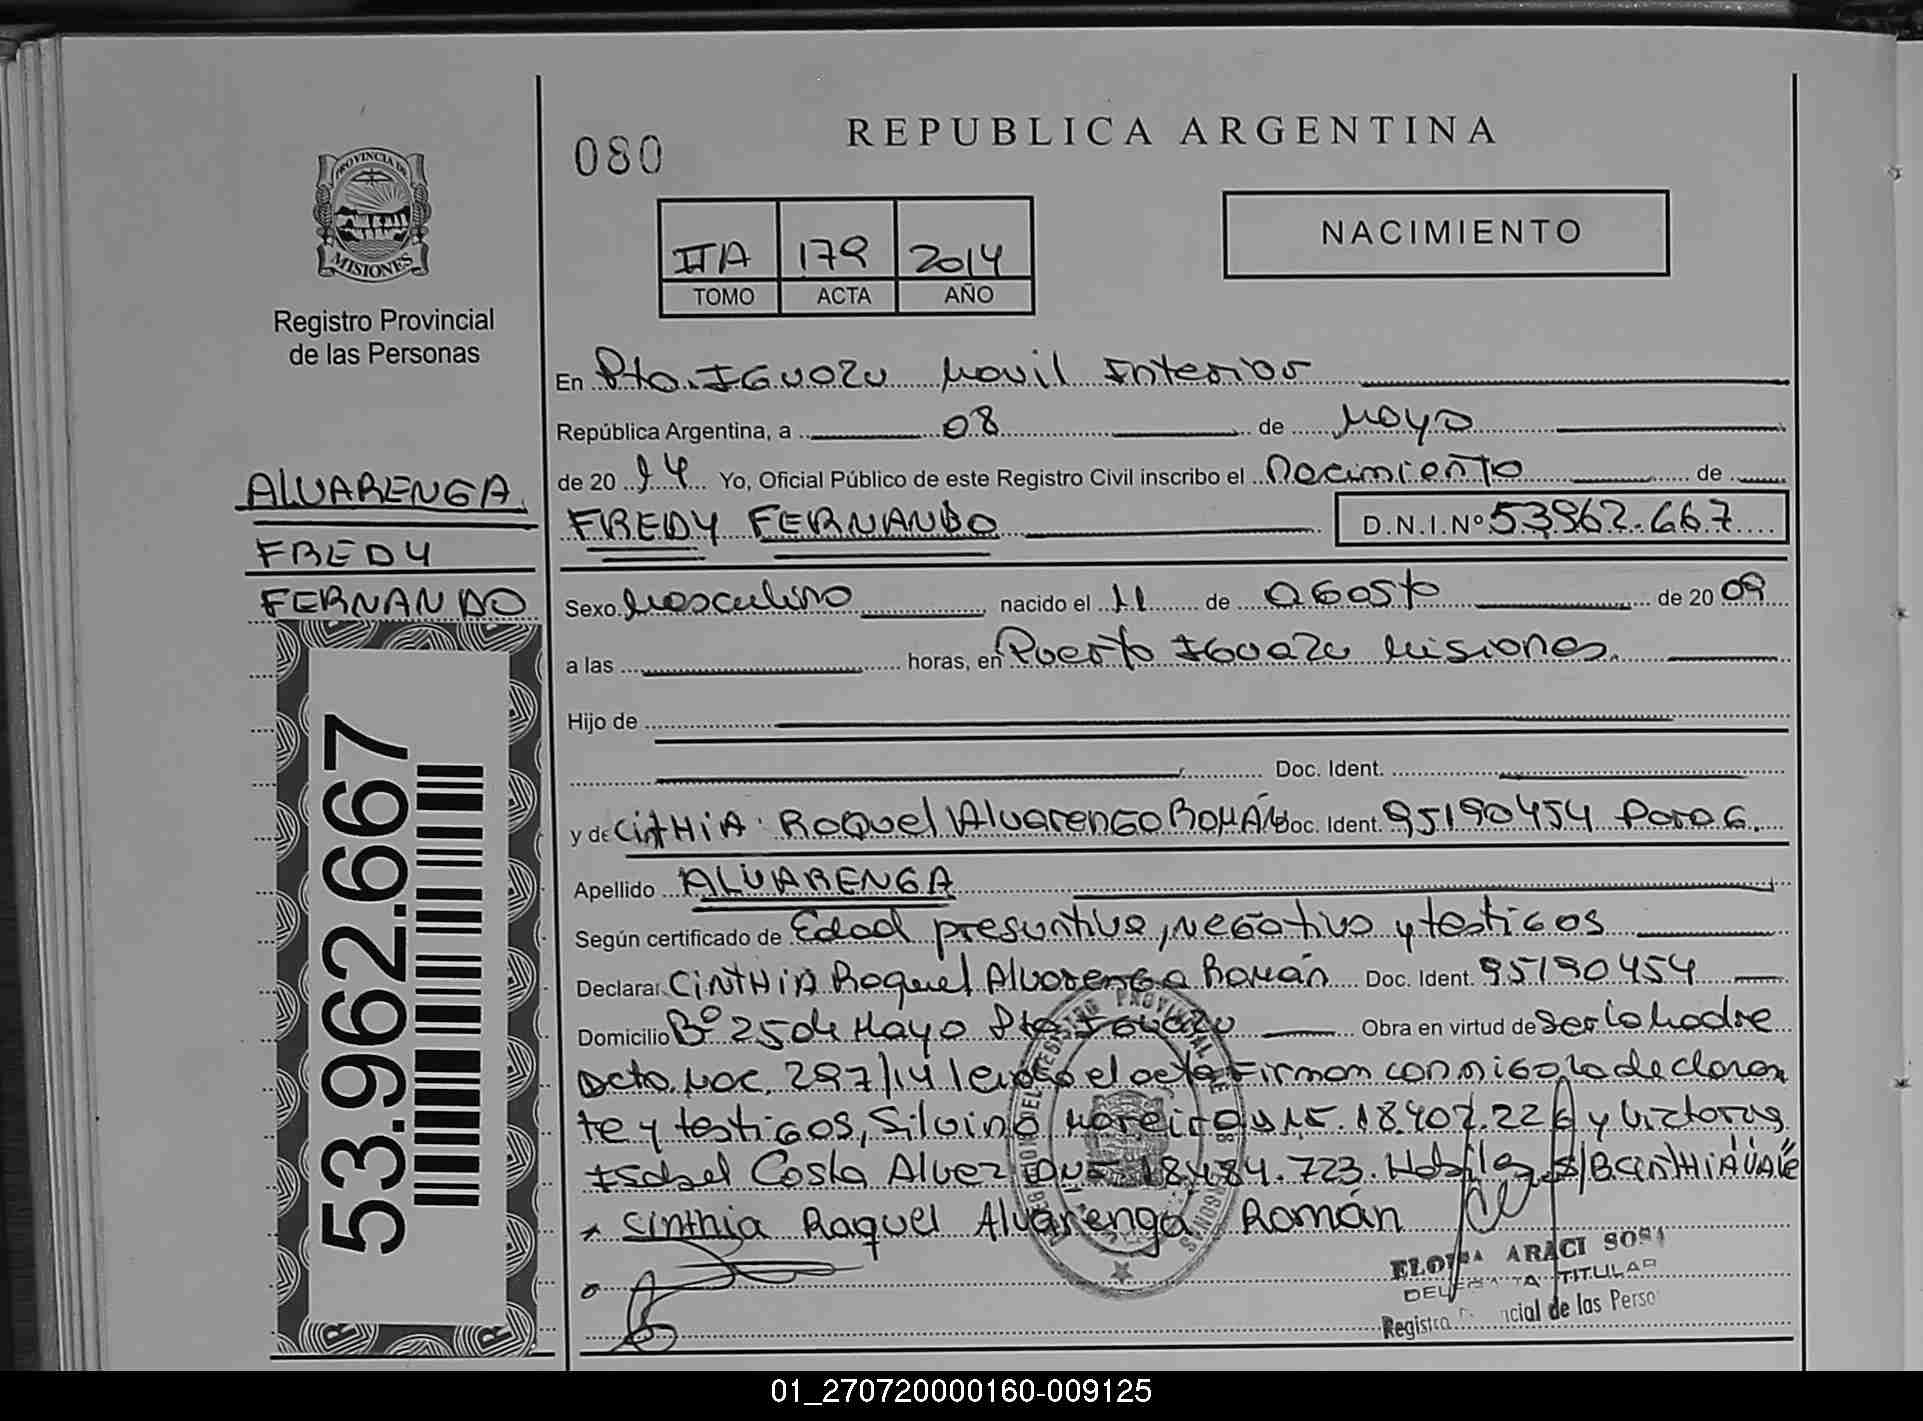 080
REPUBLICA ARGENTINA
PROVINCIA DE
MISIONES
Registro Provincial
de las Personas
IIA 179 2014
TOMO ACTA AÑO
NACIMIENTO
En Pto. Iguazu Movil Interior
República Argentina, a 08 de Mayo
de 20 14 Yo, Oficial Público de este Registro Civil inscribo el Nacimiento de
ALVARENGA
FREDY
FERNANDO
FREDY FERNANDO D.N.I.Nº 53.962.667
Sexo Masculino nacido el 11 de agosto de 20 09
a las horas, en Puerto Iguazu Misiones.
Hijo de
Doc. Ident.
y de CiNtHiA Raquel Alvarenga ROMÁN Doc. Ident. 95190454 Parag.
Apellido ALVARENGA
Según certificado de Edad presuntiva, negativo y testigos
Declarar CiNtHiA Raquel Alvarenga Román Doc. Ident. 95190454
Domicilio Bº 25 de Mayo Pto Iguazu Obra en virtud de ser la Madre
Dcto. Nac. 297/14 leida el acta Firman conmigo la declaran
te y testigos, Silvino Moreira 18.407.226 y Victoria
Isabel Costa Alvez 18.484.723. S/B CiNtHiA VALE
Cinthia Raquel Alvarenga Román
53.962.667
ARACI SOSA
TITULAR
Registro de las Perso
01_270720000160-009125